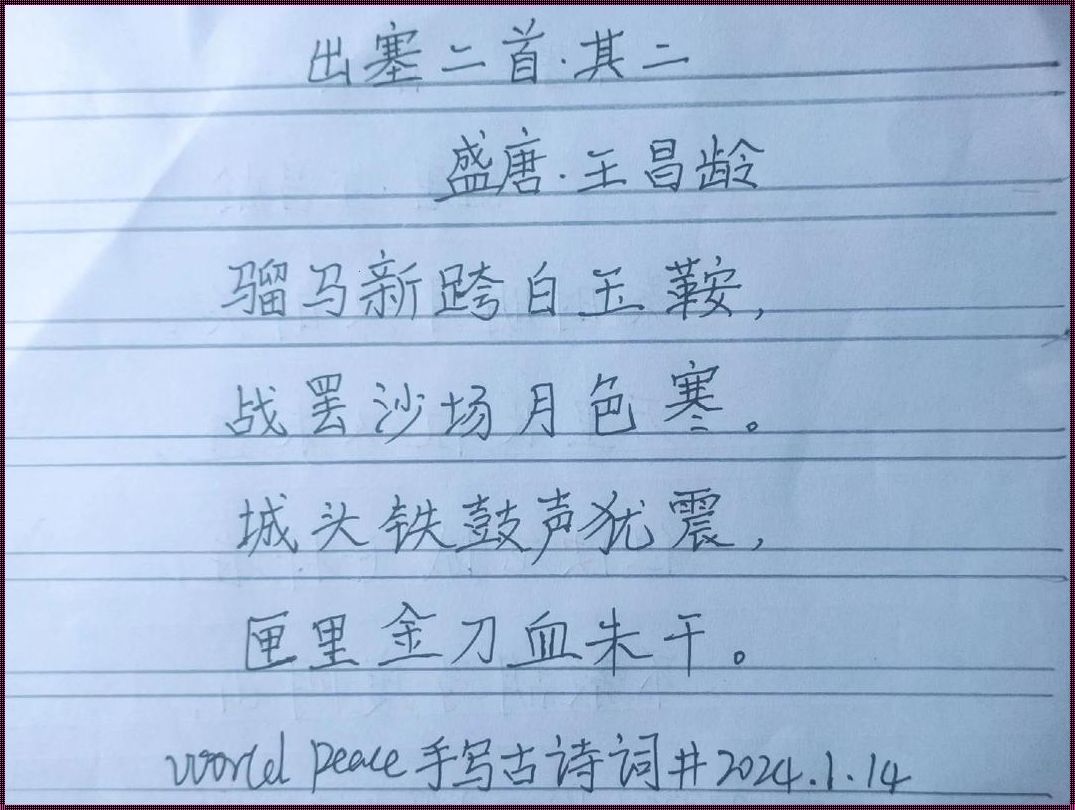 出塞二首·其二
盛唐·王昌龄
骝马新跨白玉鞍，
战罢沙场月色寒。
城头铁鼓声犹震，
匣里金刀血朱干。
world peace手写古诗词#2024.1.14